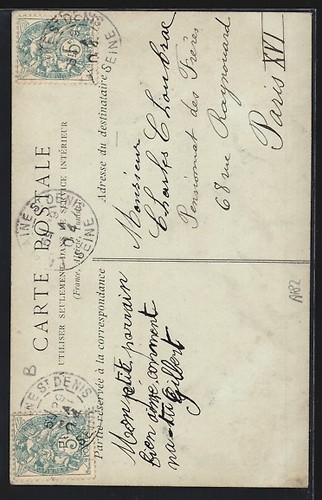 CARTE POSTALE
UTILISER SEULEMENT DANS LE SERVICE INTÉRIEUR
(France, Algérie, Tunisie)
Partie réservée à la correspondance
Adresse du destinataire
Mon petit parrain
bien aimé comment
vas-tu Gilbert
Monsieur
Charles
Pensionnat des Frères
68 rue Raynouard
Paris XVI
B
ST DENIS
SEINE
SEINE
SEINE
5
5